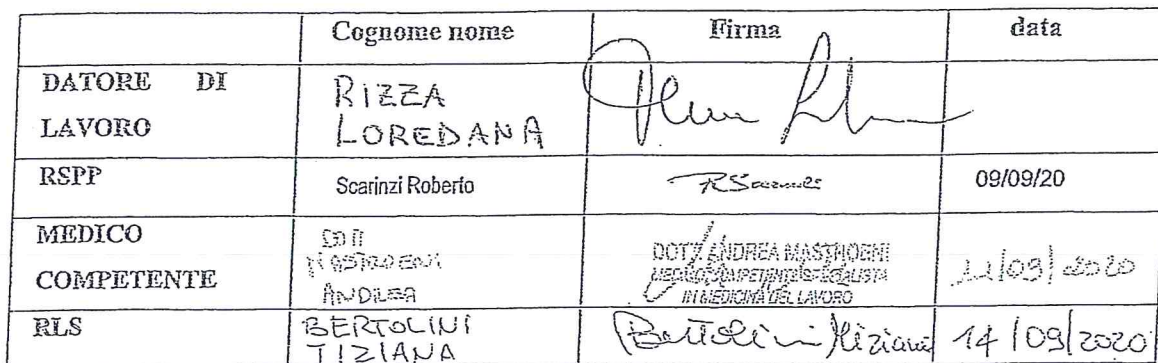 Cognome nome Firma data
DATORE DI
LAVORO
RIZZA
LOREDANA
RSPP Scarinzi Roberto RScarinzi 09/09/20
MEDICO
COMPETENTE
DOTT
MASTROENI
ANDREA
DOTT. ANDREA MASTROENI
MEDICO COMPETENTE SPECIALISTA
IN MEDICINA DEL LAVORO
11/09/2020
RLS
BERTOLINI
TIZIANA
Bertolini Tiziana 14/09/2020